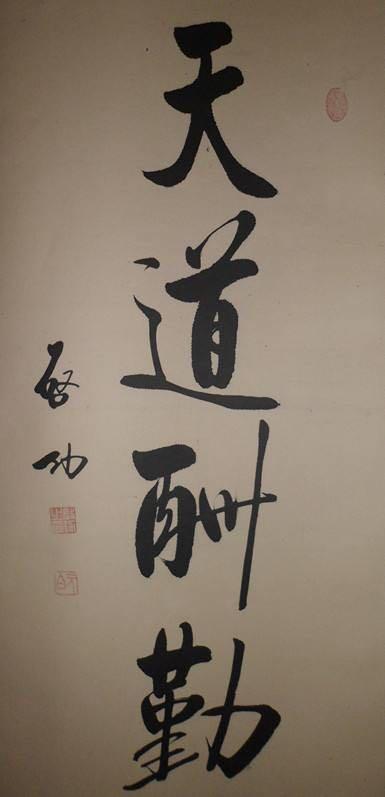 天道酬勤
啓功